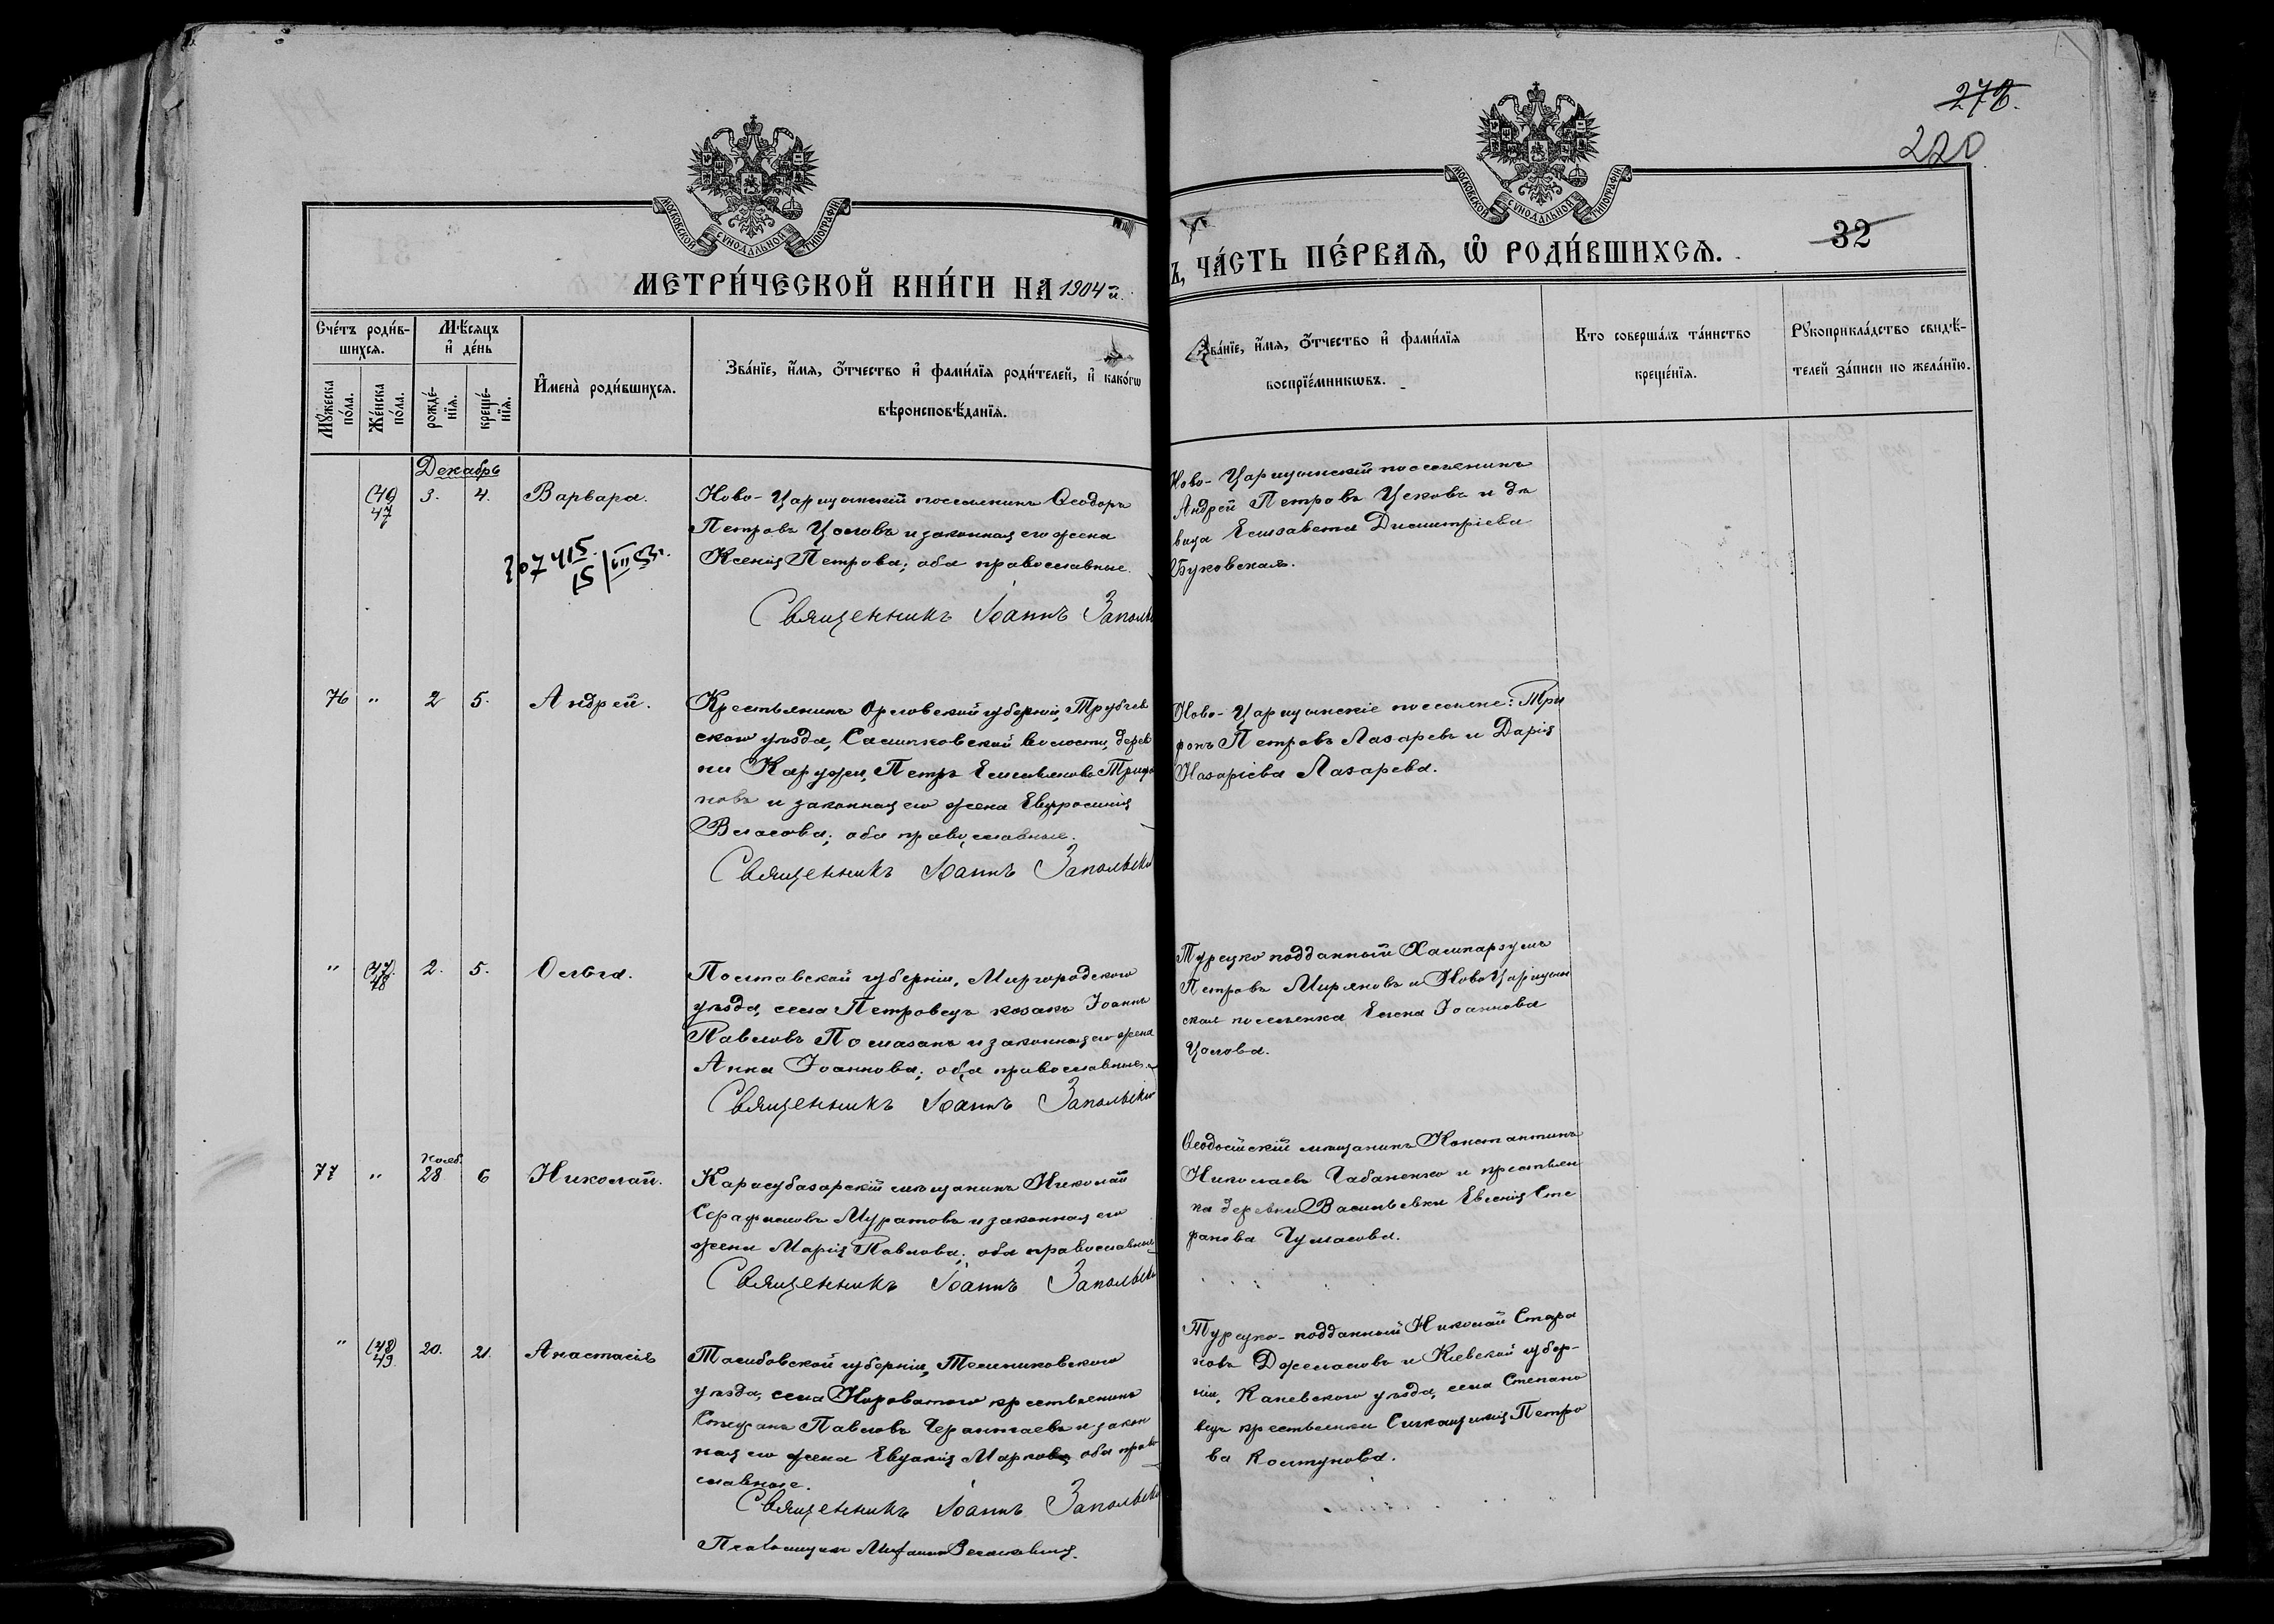 278.
220
32
МОСКОВСКОЙ СУНОДАЛЬНОЙ ТИПОГРАФІИ
МОСКОВСКОЙ СУНОДАЛЬНОЙ ТИПОГРАФІИ
МЕТРИ́ЧЕСКОЙ КНИ́ГИ НА 1904 й.
Ъ, ЧА́СТЬ ПЕ́РВАЯ, Ѡ РОДИ́ВШИХСЯ.
Сче́тъ роди́в-
шихся.
Мѣ́сяцъ
и҆ де́нь
Мꙋ́жеска по́ла.
Же́нска по́ла.
рожде́-
нїѧ.
креще́-
нїѧ.
И҆мена̀ роди́вшихся.
Зва́нїе, и҆́мя, ѻ҆́тчество и҆ фами́лїя роди́телей, и҆ како́гѡ
вѣроисповѣ́данїя.
Зва́нїе, и҆́мя, ѻ҆́тчество и҆ фами́лїя
воспрїе́мникѡвъ.
Кто соверша́лъ та́инство
креще́нїя.
Рꙋкоприкла́дство свидѣ́-
телей за́писи по жела́нїю.
Декабрь
(46) 47 3. 4. Варвара.
Ново-Царицынскій поселянинъ Ѳеодоръ
Петровъ Цоловъ и законная его жена
Ксенія Петрова; оба православные.
Священникъ Іоаннъ Запольск
Ново-Царицынскій поселенинъ
Андрей Петровъ Цековъ и дѣ
вица Елисавета Димитріева
Буковская.
76 " 2 5. Андрей.
Крестьянинъ Орловской губерніи, Трубчев
скаго уѣзда, Салтыковской волости, дерев
ни Каружи, Петръ Емельяновъ Трифо
новъ и законная его жена Евфросинія
Власова; оба православные.
Священникъ Іоаннъ Запольскі
Ново-Царицынскіе поселяне: Три
фонъ Петровъ Лазаревъ и Дарія
Назаріева Лазарева.
" (47). 48 2. 5. Ольга.
Полтавской губерніи, Миргородского
уѣзда, села Петровецъ козакъ Іоаннъ
Павловъ Помазанъ и законная его жена
Анна Іоаннова; оба православные.
Священникъ Іоаннъ Запольскій
Турецко подданный
Петровъ Мирановъ и Ново Царицын
ская поселенка Елена Іоаннова
Цолова.
77 " Нояб. 28 6 Николай.
Карасубазарскій мѣщанинъ Николай
Серафимовъ Муратовъ и законная его
жена Марія Павлова; оба православные
Священникъ Іоаннъ Запольскі
Ѳеодосійскій мѣщанинъ Константинъ
Николаевъ Чабаненко и крестьян
ка деревни Васильевки Евгенія Сте
фанова Чумасова.
" (48) 49. 20. 21. Анастасія
Тамбовской губерніи, Темниковского
уѣзда, села Нароватого крестьянинъ
Стефанъ Павловъ и закон
ная его жена Маркова оба право
славные.
Священникъ Іоаннъ Запольскі
Турецко-подданный Николай Стара
новъ Джелаловъ и Кіевской губер-
ніи, Каневского уѣзда, села Степане
вецъ крестьянка Петро
ва Колтунова.
Псаломщикъ